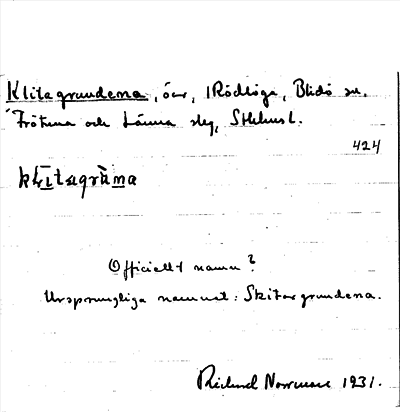 Klitagrundena, öar, Rödlöga, Blidö sn.
Frötuna och Länna slg, Sthlms l.
424
Officiellt namn?
Ursprungliga namnet: Skitargrundena.
Rickard Norrman 1931.